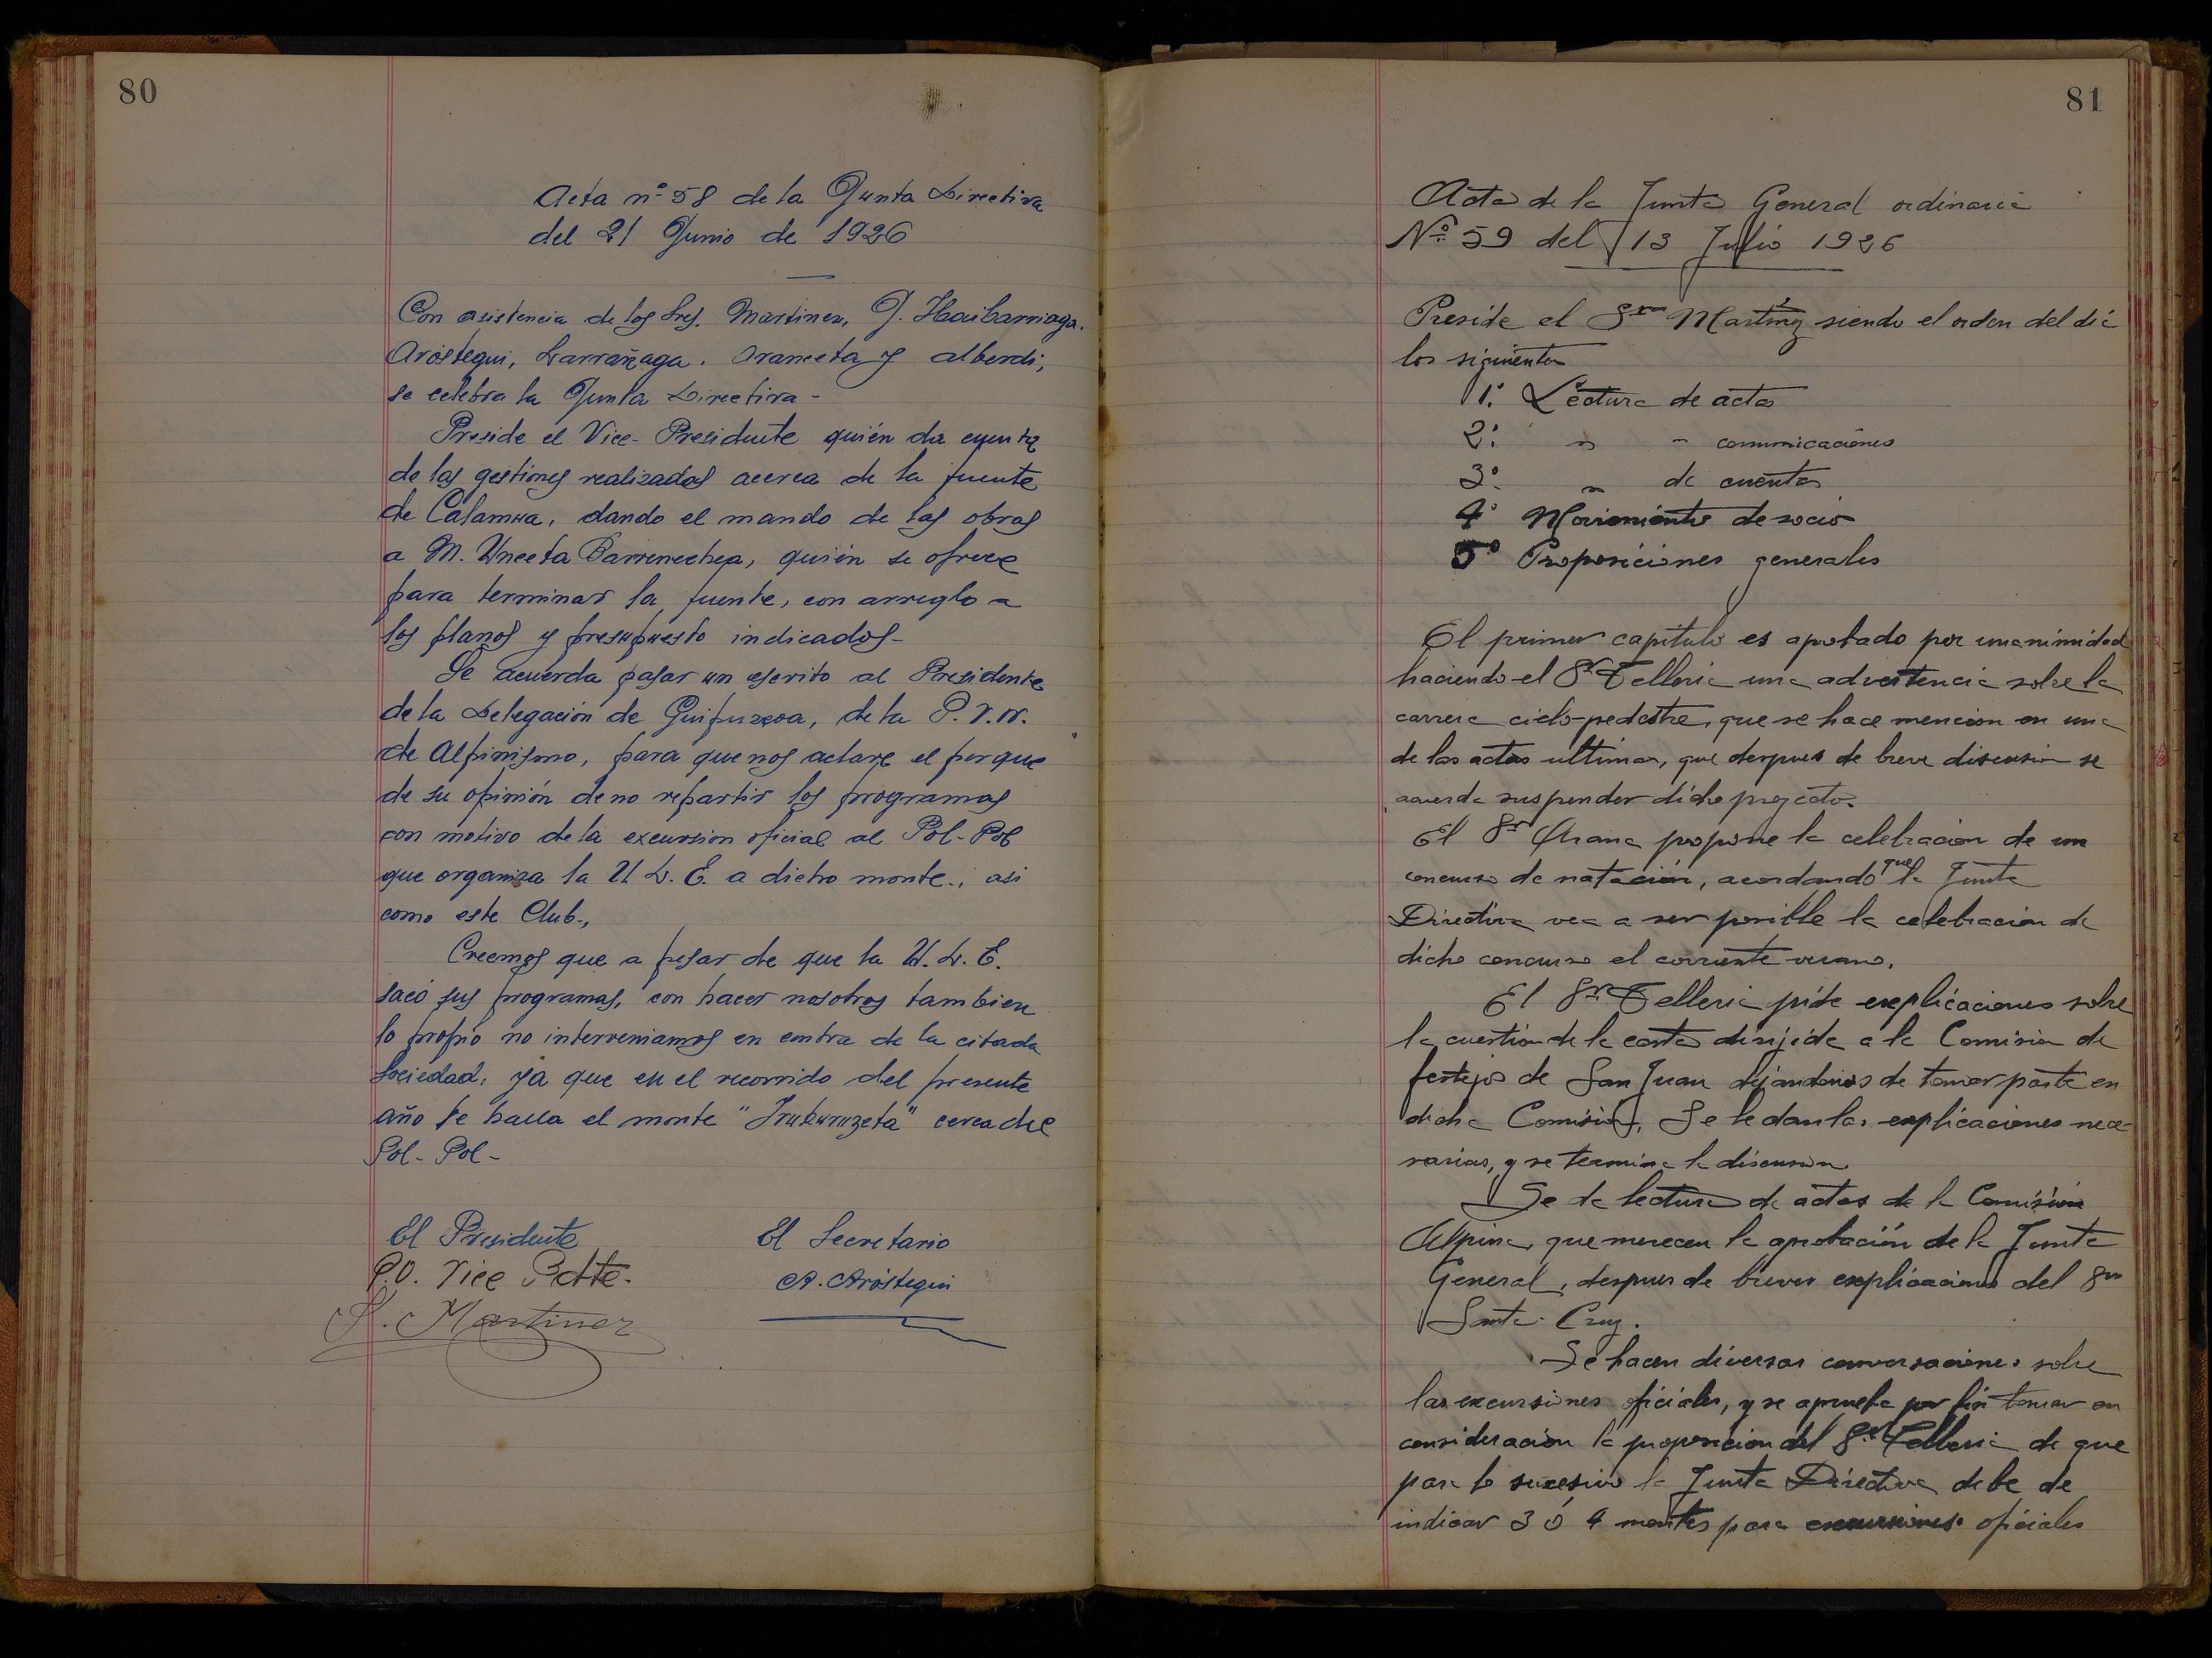 80
Acta nº 58 de la Junta Directiva
del 21 Junio de 1926
Con asistencia de los Sres. Martinez, J.
Aróstegui, Larrañaga. Aranceta y Alberdi,
se celebra la Junta Directiva-
Preside el Vice-Presidente quién da cuenta
de las gestiones realizadas acerca de la fuente
de Calamua, dando el mando de las obras
a M. Unceta Barrenechea, quién se ofrece
para terminar la fuente, con arreglo a
los planos y presupuesto indicados-
Se acuerda pasar un escrito al Presidente
de la Delegación de Guipuzcoa, de la P. V. N.
de Alpinismo, para que nos aclare el porque
de su opinión de no repartir los programas
con motivo de la excursion oficial al Pol-Pol
que organiza la U. D. E. a dicho monte., asi
como este Club.,
Creemos que a pesar de que la U. D. E.
sacó sus programas, con hacer nosotros tambien
lo propio no interveniamos en contra de la citada
Sociedad, ya que en el recorrido del presente
año se halla el monte "Irukuruzeta" cerca del
Pol-Pol-
El Presidente El Secretario
P.O. Vice Pdte. A. Aróstegui
Martinez
81
Acta de la Junta General ordinaria
Nº 59 del 13 Julio 1926
Preside el Sr Martinez siendo el orden del dia
los siguientes
1º Lectura de actas
2º " " comunicaciones
3º " de cuentas
4º Movimiento de socios
5º Proposiciones generales
El primer capitulo es aprobado por unanimidad
haciendo el Sr Telleria una advertencia sobre la
carrera ciclo-pedestre, que se hace mencion en una
de las actas ultimas, que despues de breve discusion se
acuerda suspender dicho projecto.
El Sr Arana propone la celebracion de un
concurso de natación, acordando que la Junta
Directiva vea a ser posible la celebracion de
dicho concurso el corriente verano.
El Sr Telleria pide explicaciones sobre
la cuestion de la carta dirijida a la Comision de
festejos de San Juan dejandonos de tomar parte en
dicha Comision, Se le dan las explicaciones nece-
sarias, y se termina la discusion
Se da lectura de actas de la Comisión
Alpina, que merecen la aprobación de la Junta
General, despues de breves explicaciones del Sr
Santa-Cruz.
Se hacen diversas conversaciones sobre
las excursiones oficiales, y se aprueba por fin tomar en
consideracion la proposicion del Sr Telleria de que
para lo sucesivo la Junta Directiva debe de
indicar 3 ó 4 montes para excursiones oficiales